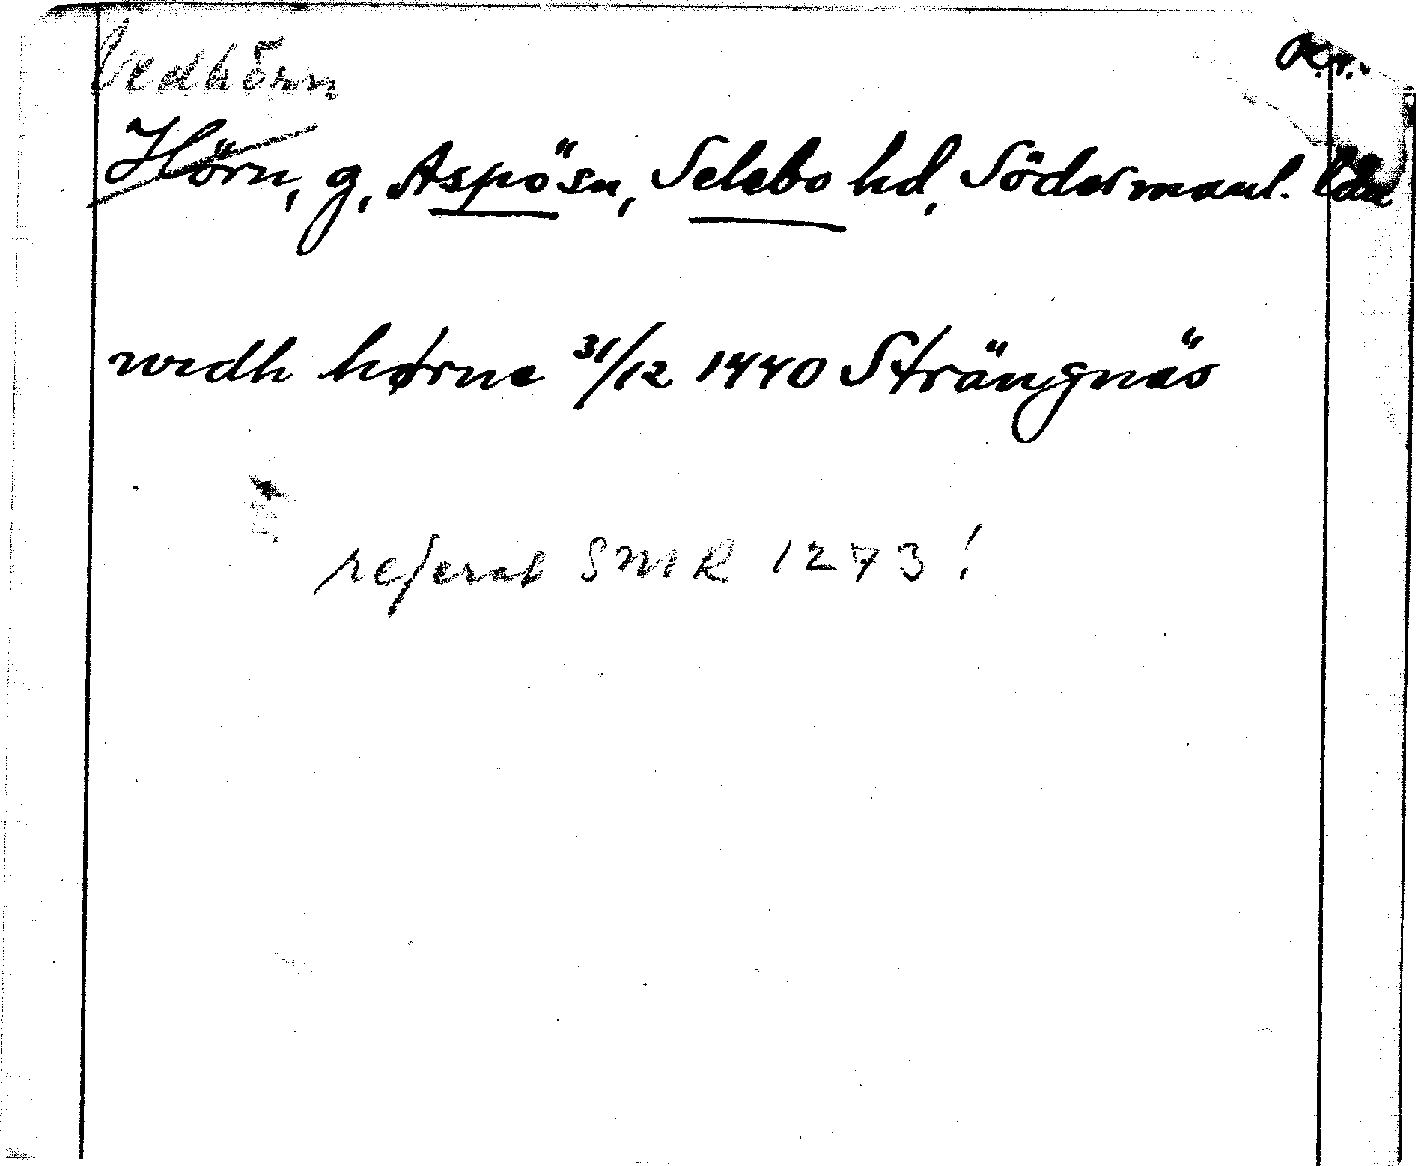 Vedhörn
Hörn, g, Aspösn, Selebo hd, Södermanl. län
wedh hørne 31/12 1440 Strängnäs
referat SMR 1273!